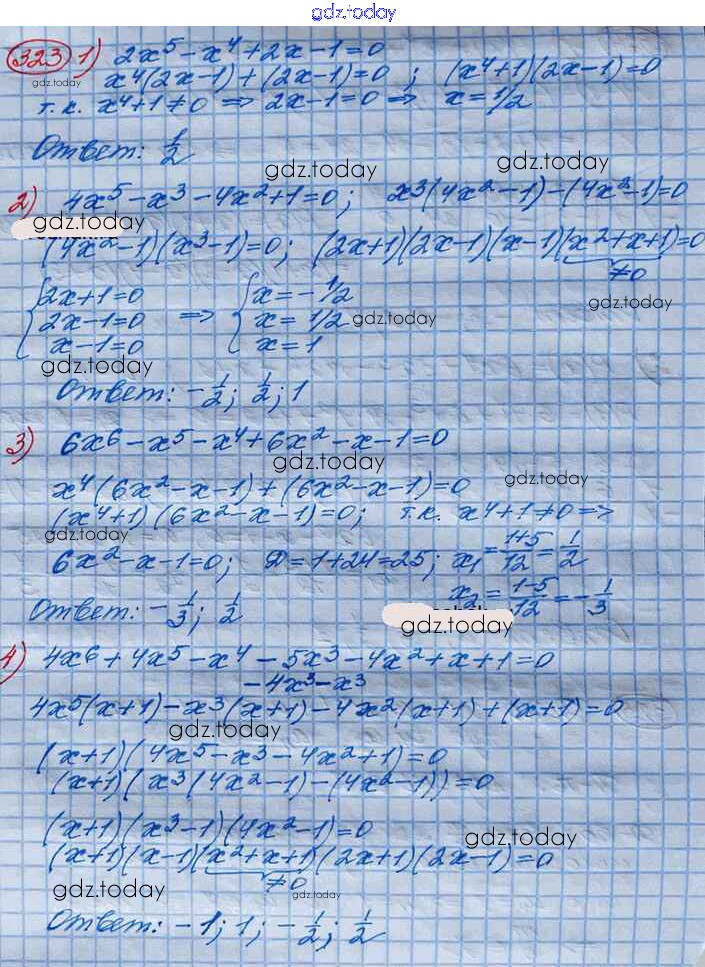 gdz.today
323 1) 2x⁵ - x⁴ + 2x - 1 = 0
x⁴(2x-1) + (2x-1) = 0 ; (x⁴+1)(2x-1) = 0
gdz.today
т.к. x⁴+1 ≠ 0 => 2x-1 = 0 => x = 1/2
Ответ: 1/2
gdz.today gdz.today
2) 4x⁵ - x³ - 4x² + 1 = 0; x³(4x² - 1) - (4x² - 1) = 0
gdz.today gdz.today
(4x² - 1)(x³ - 1) = 0; (2x+1)(2x-1)(x-1)(x²+x+1) = 0
≠0
{ 2x+1 = 0 { x = -1/2
gdz.today
2x-1 = 0 => x = 1/2 gdz.today
x-1 = 0 x = 1
gdz.today
Ответ: -1/2; 1/2; 1
3) 6x⁶ - x⁵ - x⁴ + 6x² - x - 1 = 0
gdz.today
gdz.today
x⁴(6x² - x - 1) + (6x² - x - 1) = 0
(x⁴+1)(6x² - x - 1) = 0; т.к. x⁴+1 ≠ 0 =>
gdz.today
6x² - x - 1 = 0; D = 1+24 = 25; x₁ = 1+5/12 = 1/2
x₂ = 1-5/12 = -1/3
Ответ: -1/3; 1/2
gdz.today
4) 4x⁶ + 4x⁵ - x⁴ - 5x³ - 4x² + x + 1 = 0
-4x³ - x³
4x⁵(x+1) - x³(x+1) - 4x²(x+1) + (x+1) = 0
gdz.today
(x+1)(4x⁵ - x³ - 4x² + 1) = 0
(x+1)(x³(4x² - 1) - (4x² - 1)) = 0
(x+1)(x³-1)(4x²-1) = 0
gdz.today
(x+1)(x-1)(x²+x+1)(2x+1)(2x-1) = 0
≠0
gdz.today gdz.today
Ответ: -1; 1; -1/2; 1/2